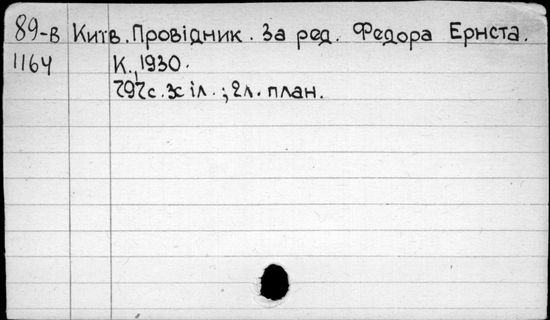 89-в Київ. Провідник. За ред. Федора Ернста.
1164 К., 1930.
797с. з іл.; 2л. план.